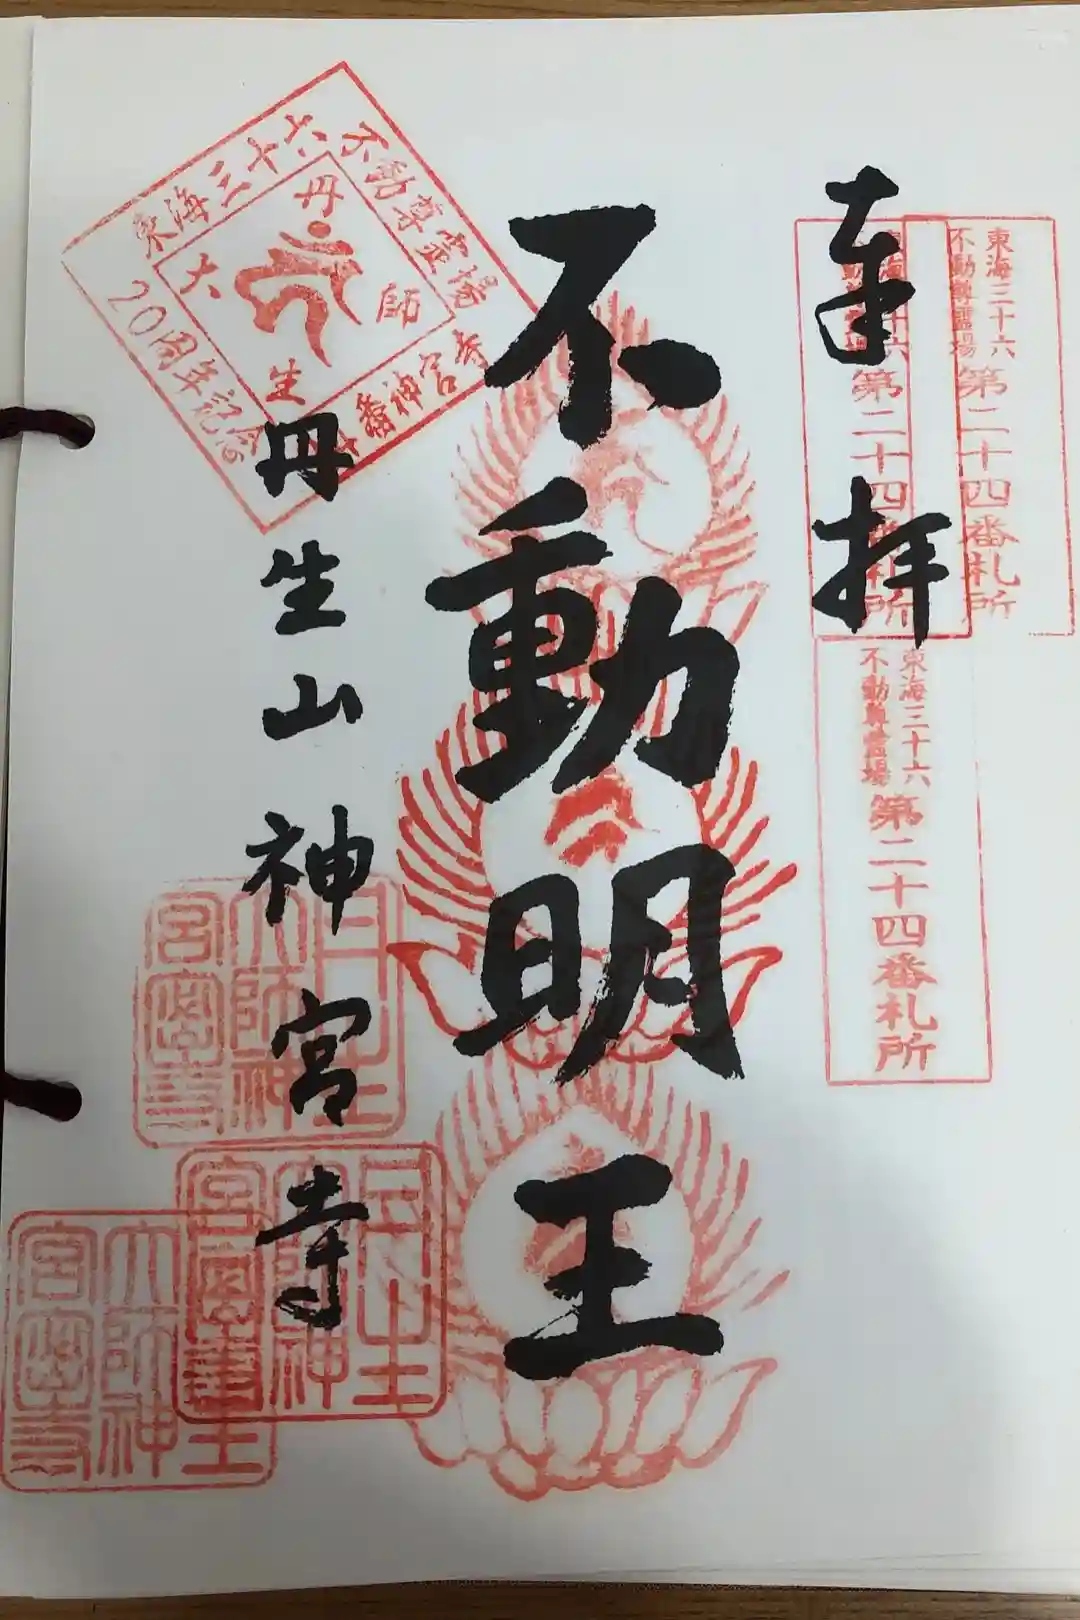 奉拝
東海三十六
不動尊霊場
第二十四番札所
東海三十六
不動尊霊場
第二十四番札所
東海三十六
不動尊霊場
第二十四番札所
不動明王
東海三十六不動尊霊場
神宮寺
20周年記念
丹生大師
丹生山神宮寺
丹生
大師神
宮寺
丹生
大師神
宮寺
丹生
大師神
宮寺